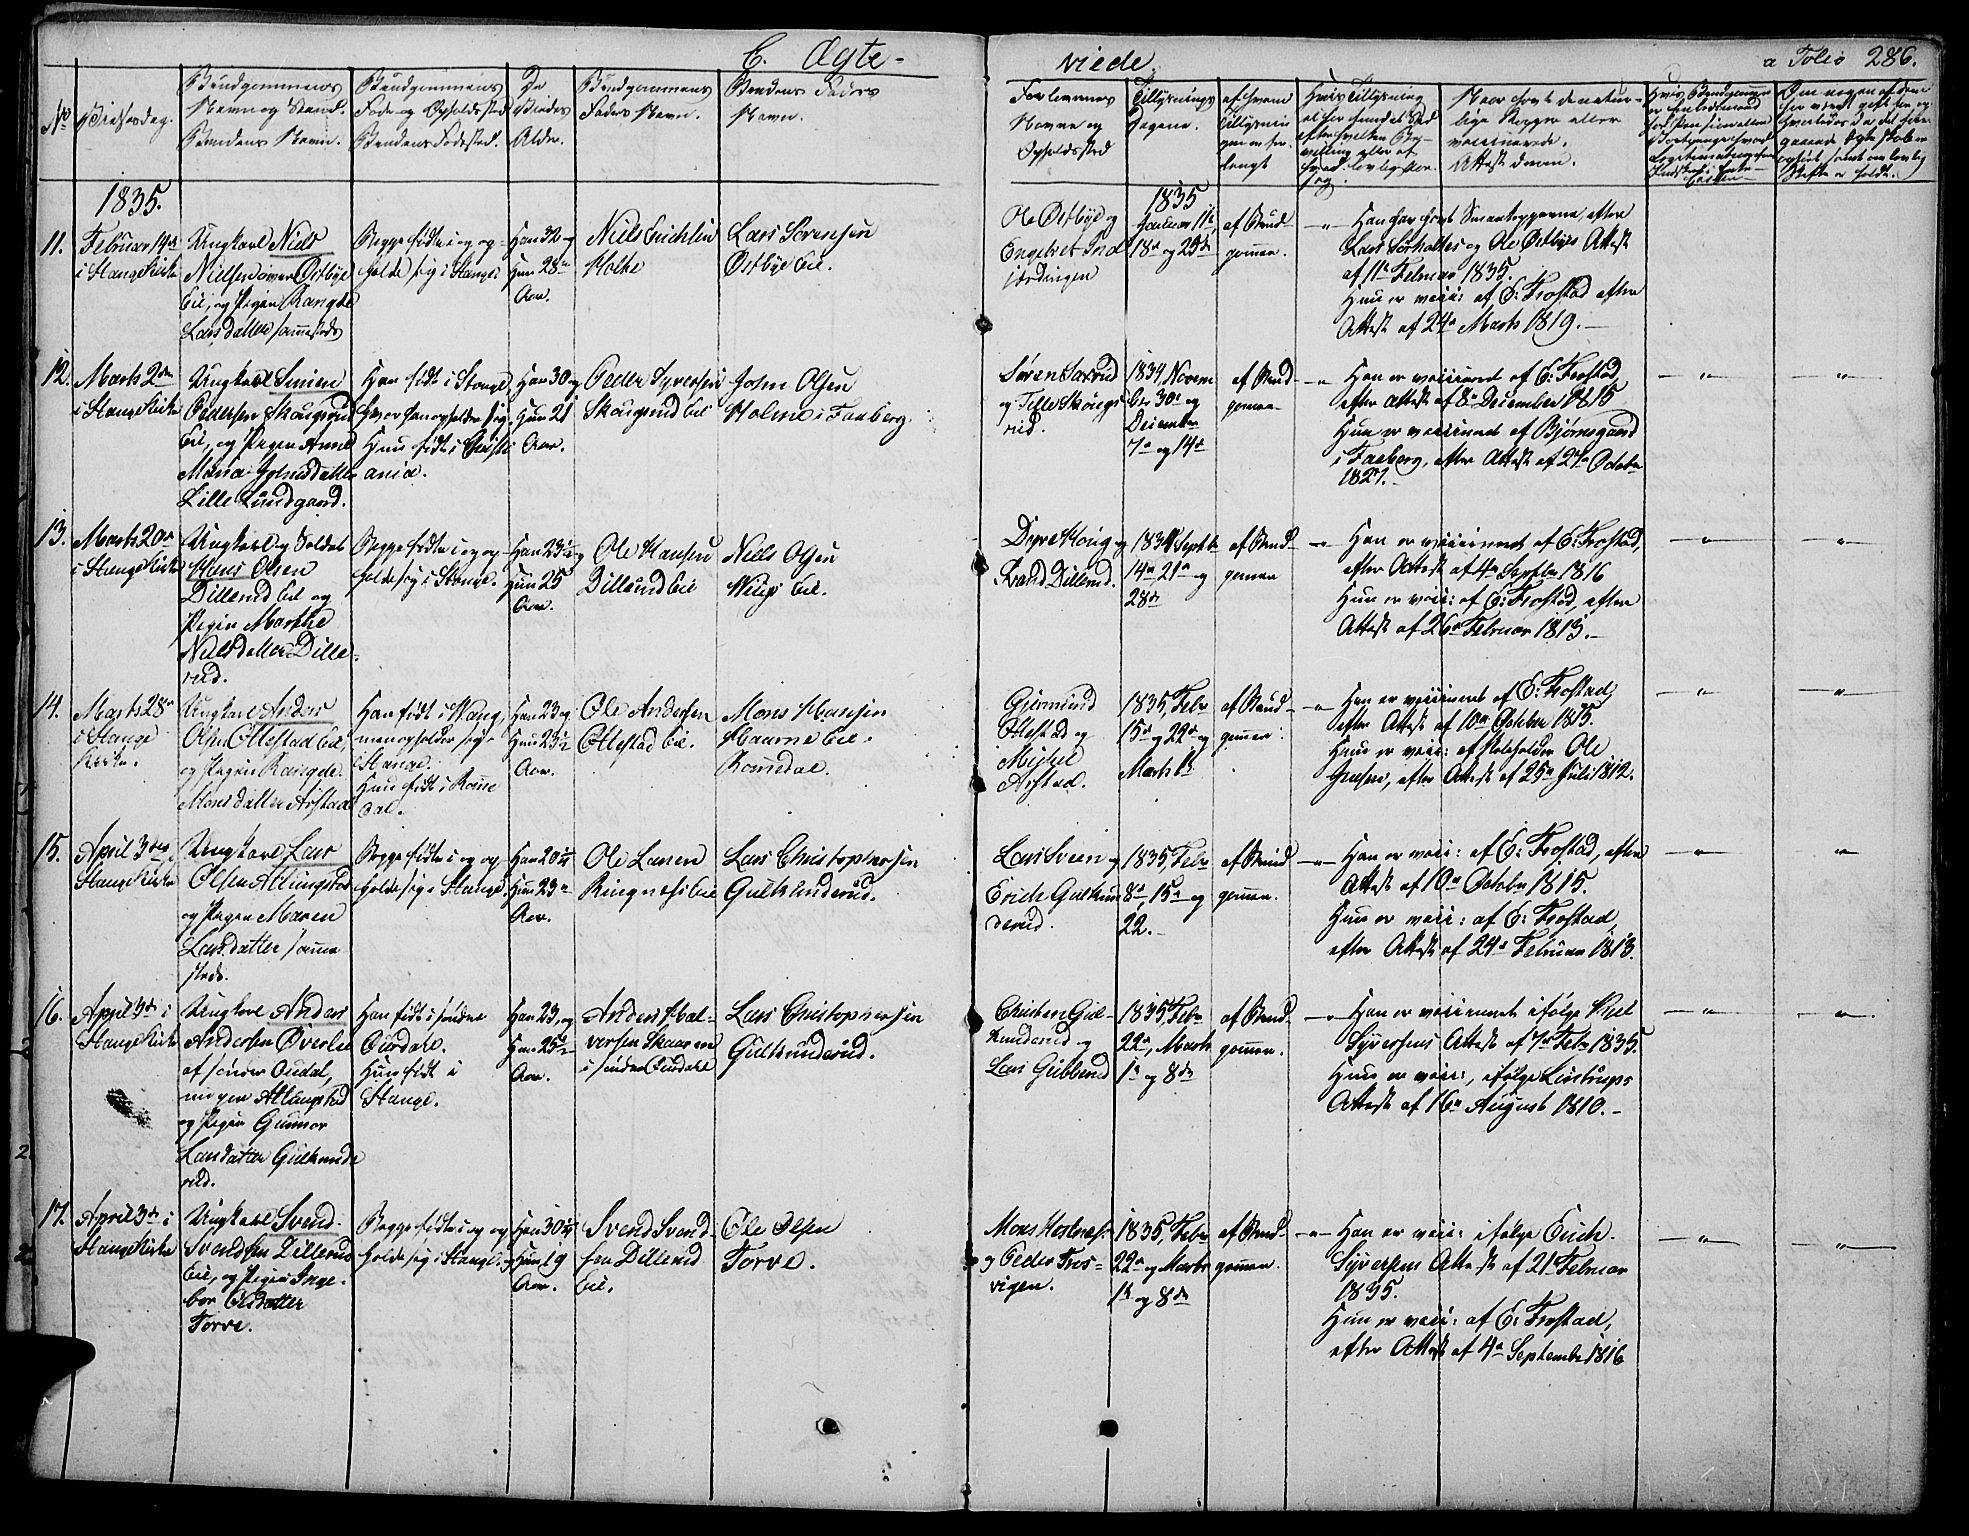 C. Ægte-
viede.
a Folio 286.
No
Vielsesdag.
Brudgommens
Navn og Stand.
Brudens Navn.
Brudgommens
Føde- og Opholdssted
Brudens Fødested.
De
Viedes
Alder.
Brudgommens
Faders Navn.
Brudens Faders
Navn.
Forlovernes
Navne og
Opholdssted
Tillysnings
Dagene.
af hvem
Tillysnin
gen er for-
langt
Naar havt de natur-
lige Kopper eller
vaccinerede.
Attest derom.
1835.
11.
Februar 14de
i Stange Kirke
Ungkarl Niels
Nielsen Østbye
Eie, og Pigen Rangde
Larsdatter sammesteds
Begge fødte i og op-
holde sig i Stange
Han 32 og
Hun 28
Aar.
Niels Erichsen
Holte
Lars Sørensen
Østbye Eie.
Ole Østbye og
Engebret Ind
jordengen
1835
Januar 11te,
18de og 25de
af Brud-
gomen.
— " — Han har havt Smaakopperne, efter
Lars Sørholtes og Ole Østbyes Attest
af 11te Februar 1835.
Hun er vacc: af E: Frostad efter
Attest af 24de Marts 1819. —
12.
Marts 2den
i Stange Kirke
Ungkarl Simen
Pedersen Skougrud
Eie, og Pigen Anne
Maria Johnsdatter
Lille Lundgaard.
Han født i Stange,
hvor han opholder sig.
Hun født i Christi
ania.
Han 30 og
Hun 21
Aar.
Peder Syversen
Skougrud Eie
John Olsen
Holme i Faaberg.
Søren Saxrud
og Tolle Skougs
rud.
1834, Novem
ber 30te og
December
7de og 14de
af Brud-
gomen.
— " — Han er vaccineret af E: Frostad,
efter Attest af 8de December 1815
Hun er vaccineret af Bjørnsgaard
i Faaberg, efter Attest af 24de October
1821. —
— " —
— " —
13.
Marts 20de
i Stange Kirke
Ungkarl og Soldat
Hans Olsen
Dillerud Eie og
Pigen Marthe
Nielsdatter Dille-
rud.
Begge fødte i og op-
holde sig i Stange.
Han 23½ og
Hun 25
Aar.
Ole Hansen
Dillerud Eie
Niels Olsen
Wilijs Eie.
Dyre Houg og
Dillerud.
1834 Septbr
14de, 21de og
28de
af Brud-
gomen
— " — Han er vaccineret af E: Frostad,
efter Attest af 4de Septbr 1816
Hun er vacc: af E: Frostad, efter
Attest af 26de Februar 1813. —
— " —
— " —
14.
Marts 28de
i Stange
Kirke.
Ungkarl Anders
Olsen Ottestad Eie,
og Pigen Rangde
Monsdatter Arstad
Han født i Vang,
men opholder sig i
Stange.
Hun født i Rome
dal.
Han 23 og
Hun 23½
Aar.
Ole Andersen
Ottestad Eie.
Mons Hansen
Haarne Eie i
Romedal.
Gjermund
Ottestad og
Michel
Arstad.
1835, Febr
15de og 22de og
Marts 1te
af Brud-
gomen
— " — Han er vaccineret af E: Frostad,
efter Attest af 10de October 1815.
Hun er vacc: af Skoleholder Ole
, efter Attest af 25de Juli 1812.
— " —
— " —
15.
April 3die i
Stange Kirke
Ungkarl Lars
Olsen Atlungstad
og Pigen Maren
Larsdatter samme
steds.
Begge fødte i og op
holde sig i Stange.
Han 20 og
Hun 23
Aar.
Ole Larsen
Ringnæs Eie
Lars Christophersen
Gulkunderud.
Lars Sveen og
Erich Gulkun
derud.
1835, Febr
8de, 15de og
22. —
af Brud
gomen.
— " — Han er vacc: af E: Frostad, efter
Attest af 10de October 1815.
Hun er vacc: af E: Frostad,
efter Attest af 24de Februar 1813.
— " —
"
16.
April 3die i
Stange Kirke
Ungkarl Anders
Andersen Øverlie
af søndre Ourdal,
nu paa Atlungstad
og Pigen Gunnor
Larsdatter Gulkunde
rud.
Han født i søndre
Ourdal.
Hun født i
Stange.
Han 23, og
Hun 25½
Aar.
Anders Hal-
versen Skaaren
i søndre Ourdal
Lars Christophersen
Gulkunderud.
Christen Gul-
kunderud og
Lars Gubberud
1835, Febr
22de, Marts
1te og 8de
af Brud-
gomen.
— " — Han er vaccineret ifølge
Syversens Attest af 7de Febr 1835.
Hun er vacc:, ifølge Lintrups
Attest af 16de August 1810. —
— " —
— " —
17.
April 3die i
Stange Kirke
Ungkarl Svend
Svendsen Dillerud
Eie, og Pigen Inge-
bor Olsdatter
Torve.
Begge fødte i og op
holde sig i Stange.
Han 30 og
Hun 19
Aar.
Svend Svend-
sen Dillerud
Eie.
Ole Olsen
Torve.
Mons
og Peder Fros-
vigen.
1835, Febr
22de og Marts
1te og 8de
af Brud-
gomen.
— " — Han er vacc: ifølge Erich
Syversens Attest af 21de Februar
1835.
Hun er vacc: af E: Frostad,
efter Attest af 4de September 1816
— " —
— " —